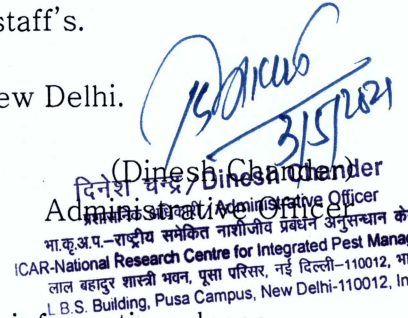 staff's.
ew Delhi.
3/5/2021
(Dinesh Chander)
दिनेश चन्द्र / Dinesh Chander
Administrative Officer
प्रशासनिक अधिकारी / Administrative Officer
भा.कृ.अ.प.–राष्ट्रीय समेकित नाशीजीव प्रबंधन अनुसन्धान के
ICAR-National Research Centre for Integrated Pest Manag
लाल बहादुर शास्त्री भवन, पूसा परिसर, नई दिल्ली–110012, भा
L B.S. Building, Pusa Campus, New Delhi-110012, In